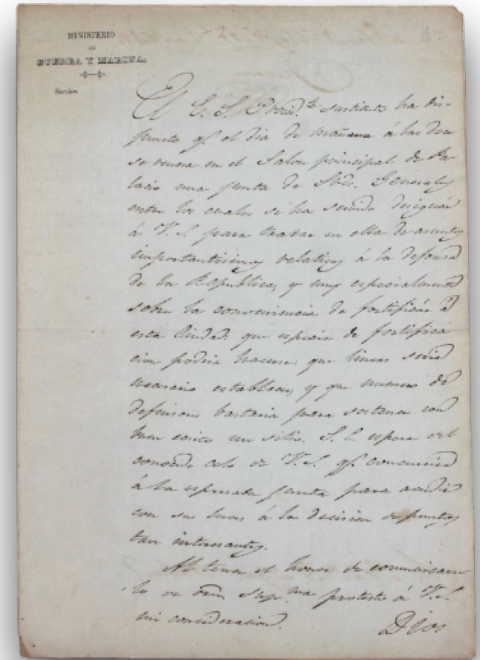 MINISTERIO
DE
GUERRA Y MARINA.
Seccion
El E. S. Presid.te sustituto ha dis-
puesto q.e el dia de mañana á las dies
se reuna en el Salon principal de Pa-
lacio una junta de Sres. Generales
entre los cuales se ha servido designar
á V. S. para tratar en ella de asuntos
importantisimos relativos á la defensa
de la Republica, y muy especialmente
sobre la conveniencia de fortificar á
esta Ciudad: que especie de fortifica
cion podria hacerse: que lineas seria
necesario establecer, y que numero de
defensores bastaria para sostener con
buen exito un sitio. S. E. espera del
conocido celo de V. S. q.e concurrirá
á la espresada junta para
con sus luces á la decision de puntos
tan interesantes.
Al tener el honor de comunicarse-
lo de orn. Sup.ma protesto á V. S.
mi consideracion.
Dios